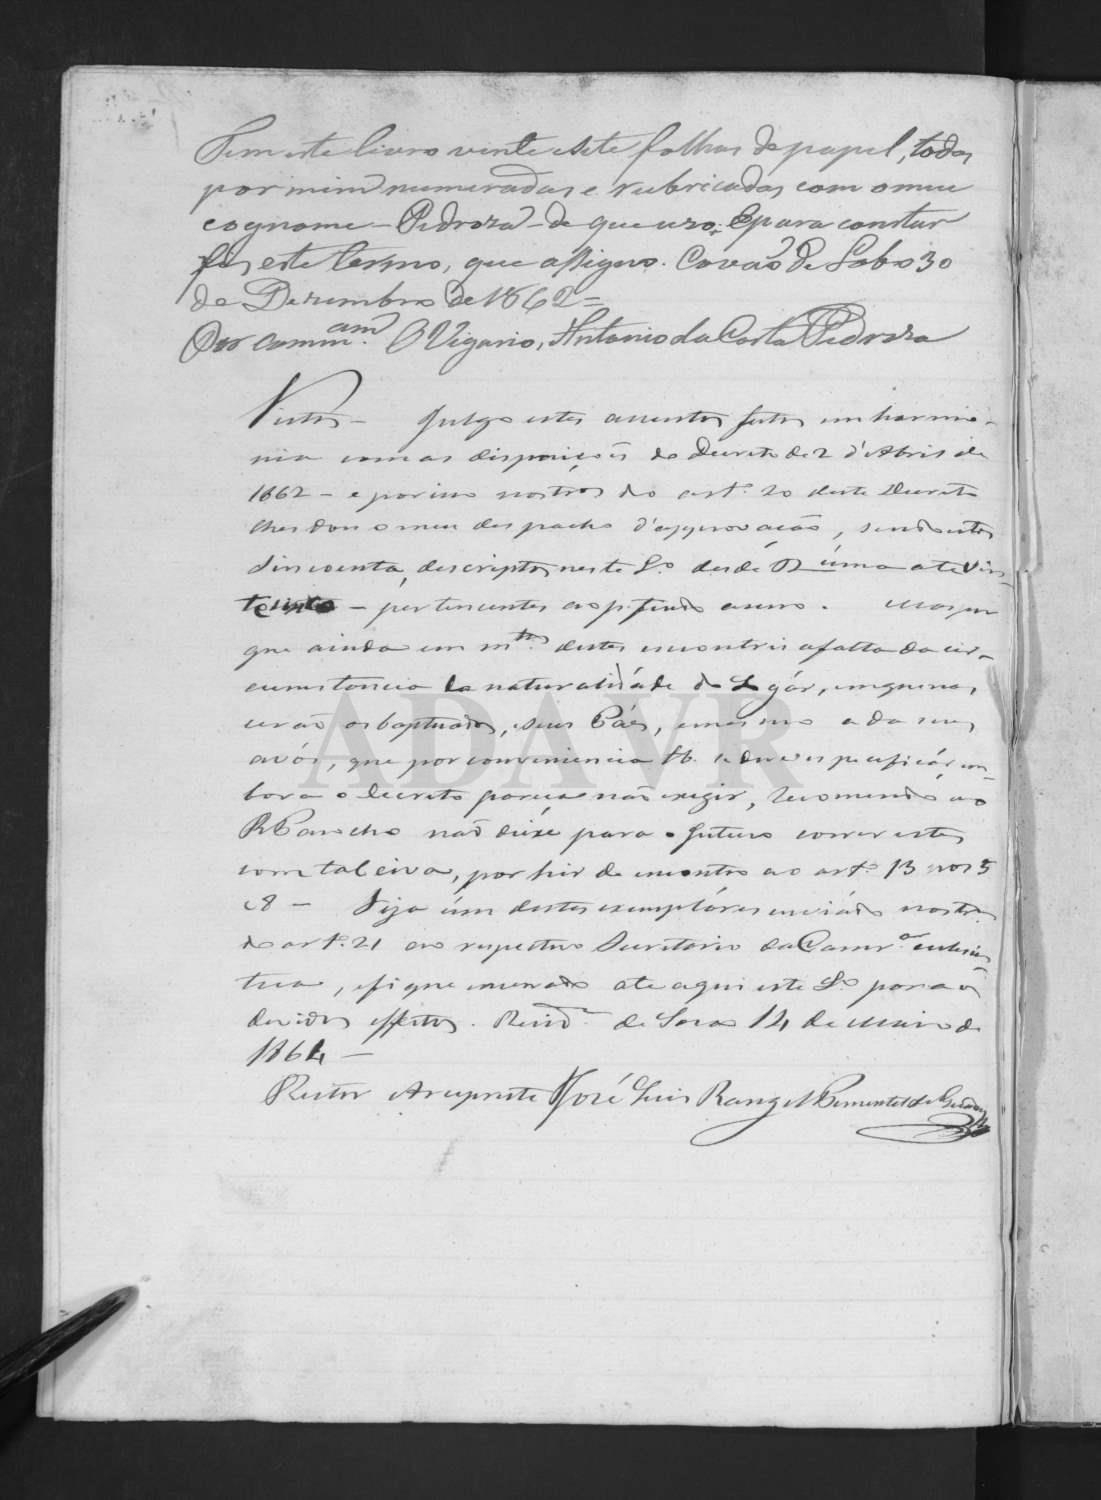 Tem este livro vinte e sete folhas de papel, todas
por mim numeradas e rubricadas com o meu
cognome - Pedroza - de que uzo. E para constar
fiz este termo, que assigno. Covaõ de Lobo 30
de Dezembro de 1862 =
Por commam. O Vigario, Antonio da Costa Pedroza
Vistos - Julgo estes assentos feitos em harmo-
nia com as disposições do Decreto de 2 d'Abril de
1862 - e por isso nos trºs do artº 20 deste Decreto
lhes dou o meu despacho d'approvação, sendo estes
sincoenta, descriptos neste Lº desde Nº úma ate vin-
te sinco - pertencentes ao p. findo anno. Mas por
que ainda em mtos destes encontrei a falta da cir-
cumstancia da naturalidáde do Lgár, em que nas-
cerão os baptisados, seus Páes, e mesmo a da seus
avós, que por conveniencia tb. se deve especificár, em-
bora o decreto pareça não exigir, recomendo ao
R Parocho não deixe para o futuro correr estes
com tal eiva, por hir de encontro ao artº 13 nos 5
e 8 - Sija úm destes exempláres enviádo nos trºs
do artº 21 ao respectivo Secretario da Camrª eclesiás
tica, e fique encerrado ate aqui este Lº para os
devidos effeitos. Residª de Soza 14 de Maio de
1864 -
Reitor Arcipreste José Luis Rangel Pimentel de